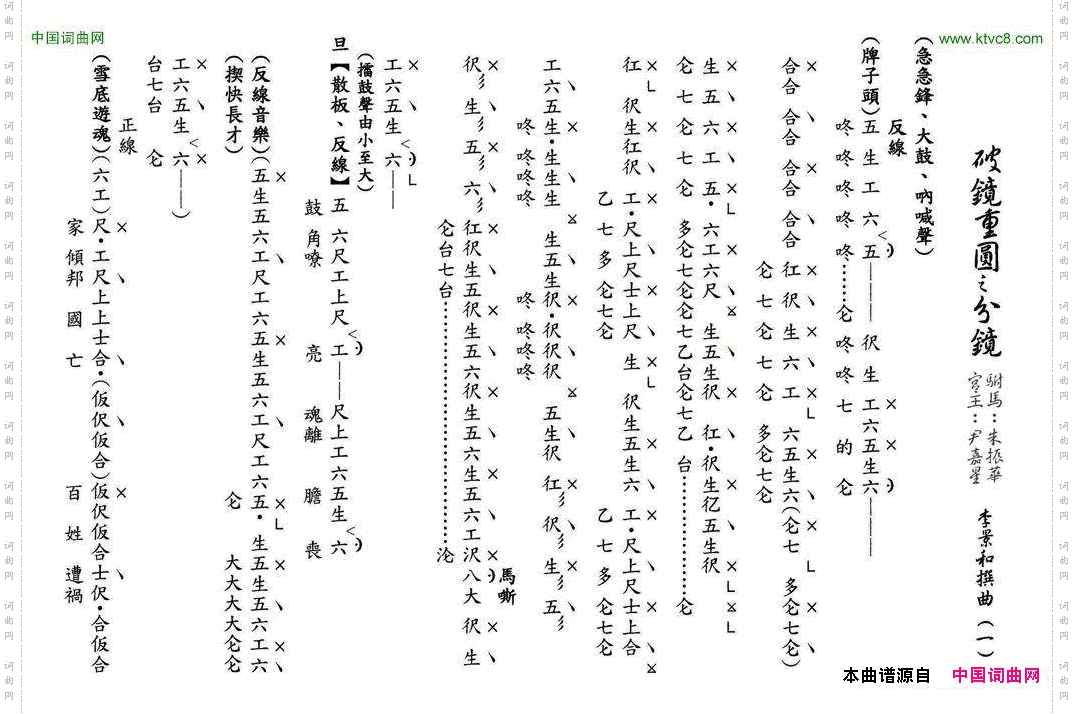 中国词曲网
www.ktvc8.com
破鏡重圓之分鏡
駙馬：朱振華
宮主：尹嘉星
李景和撰曲（一）
（急急鋒、大鼓、吶喊聲）
反線
（牌子頭）五生工六五————仩生工六五生六————
咚咚咚咚咚……仑咚咚七的仑
合合合合合合合合仜仩生六工六五生六（仑七多仑七仑）
仑七仑七仑多仑七仑
生五六工五•六工六尺生五生仩仜•仩生亿五生仩
仑七仑七仑多仑七仑仑七乙台仑七乙台……………仑
仜仩生仜仩工•尺上尺士上尺生仩生五生六工•尺上尺士上合
乙七多仑七仑乙七多仑七仑
工六五生•生生生生五生仩•仩仩仩五生仩仜仩生五
咚咚咚咚咚咚咚咚
馬嘶
仩生五六仜仩生五仩生五六仩生五六生五六工沢八大仩生
仑台七台………………………沦
工六五生六——
（擂鼓聲由小至大）
旦【散板、反線】五六尺工上尺工——尺上工六五生六
鼓角嘹亮魂離膽喪
（反線音樂）（五生五六工尺工六五生五六工尺工六五•生五生五六工六
（揳快長才）仑大大大大仑仑
工六五生六———）
台七台仑
正線
（雪底遊魂）（六工）尺•工尺上上士合•（仮伬仮合）仮伬仮合士伬•合仮合
家傾邦國亡百姓遭禍
本曲谱源自 中国词曲网